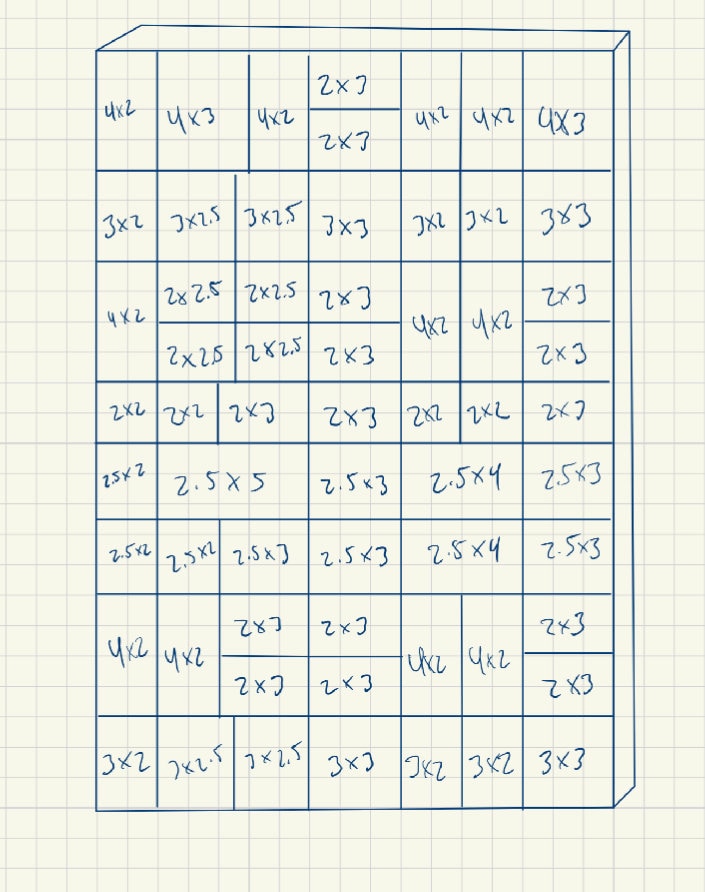 4x2 4x3 4x2 2x3 4x2 4x2 4x3
2x3
3x2 3x2.5 3x2.5 3x3 3x2 3x2 3x3
4x2 2x2.5 2x2.5 2x3 4x2 4x2 2x3
2x2.5 2x2.5 2x3 2x3
2x2 2x2 2x3 2x3 2x2 2x2 2x3
2.5x2 2.5x5 2.5x3 2.5x4 2.5x3
2.5x2 2.5x2 2.5x3 2.5x3 2.5x4 2.5x3
4x2 4x2 2x3 2x3 4x2 4x2 2x3
2x3 2x3 2x3
3x2 3x2.5 3x2.5 3x3 3x2 3x2 3x3